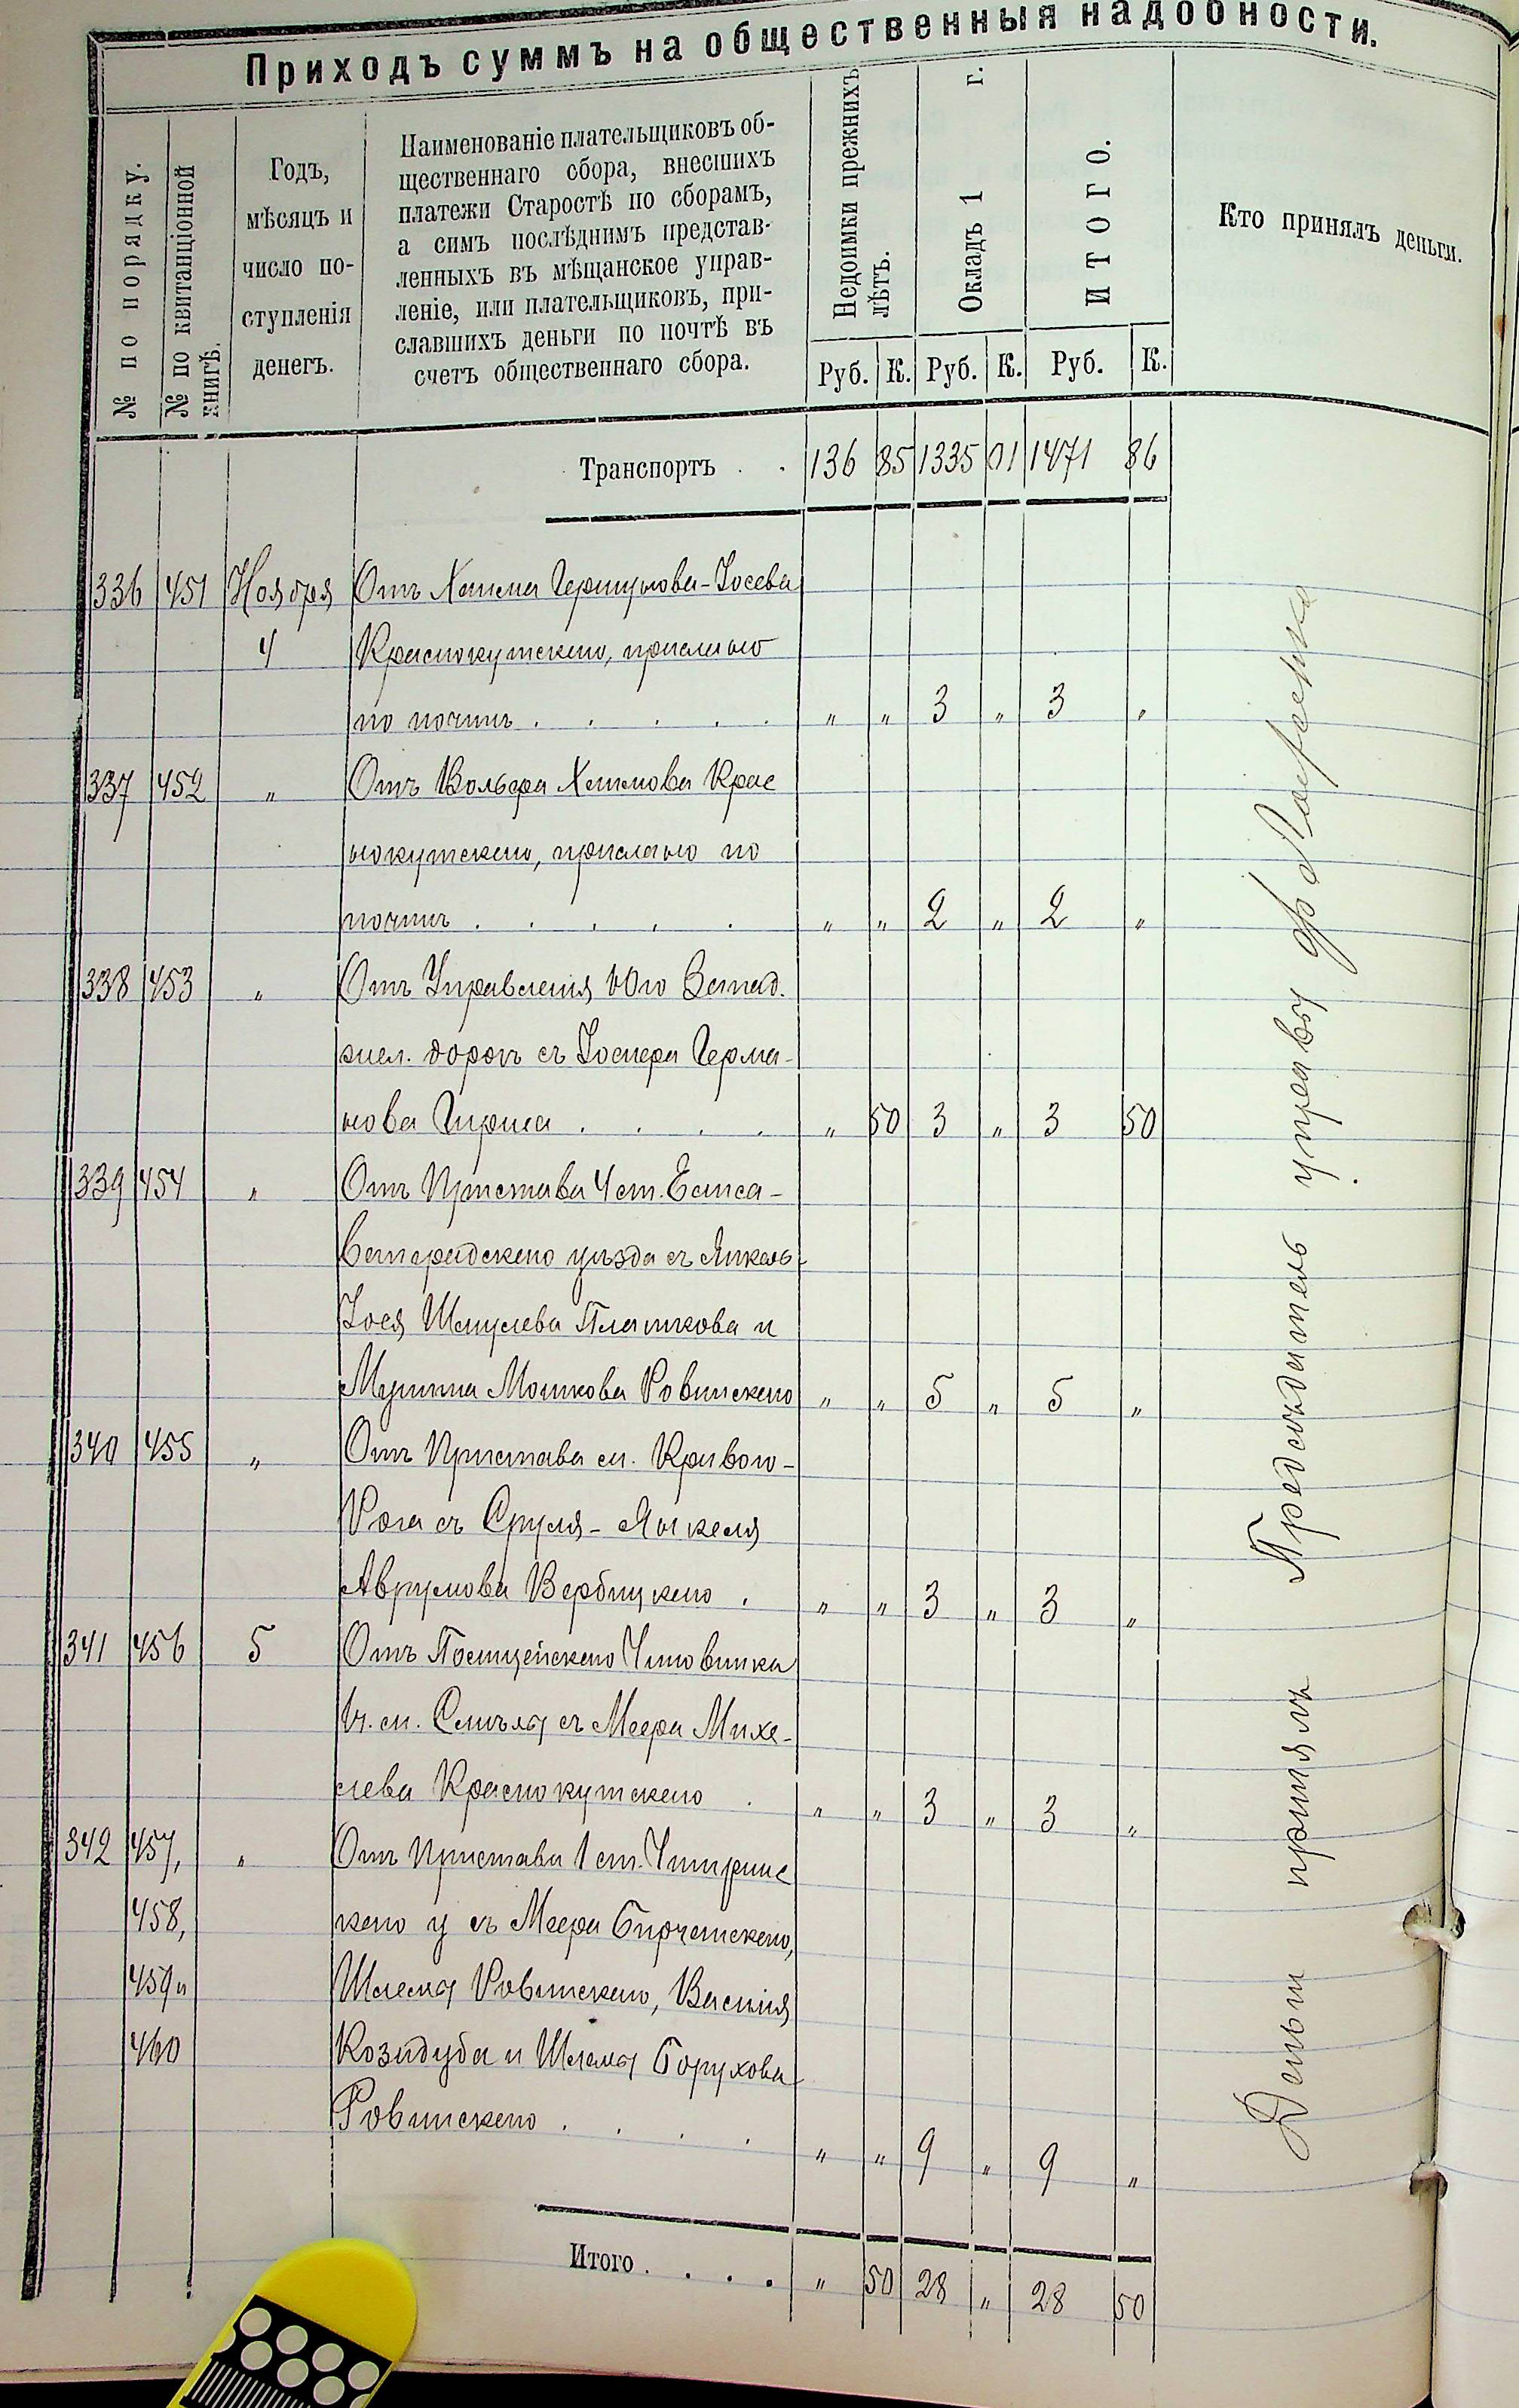 Приходъ суммъ на общественныя надобности.
№ по порядку.
№ по квитанціонной
книгѣ.
Годъ,
мѣсяцъ и
число по-
ступленія
денегъ.
Наименованіе плательщиковъ об-
щественнаго сбора, внесшихъ
платежи Старостѣ по сборамъ,
а симъ послѣднимъ представ-
ленныхъ въ мѣщанское управ-
леніе, или плательщиковъ, при-
славшихъ деньги по почтѣ въ
счетъ общественнаго сбора.
Недоимки прежнихъ
лѣтъ.
Окладъ 1 г.
ИТОГО.
Кто принялъ деньги.
Руб. К. Руб. К. Руб. К.
Транспортъ . . 136 85 1335 01 1471 86
336 451 Ноября Отъ Хаима Гершунова-Іосева
4 Краснокутскаго, прислано
по почтѣ . . . . . „ „ 3 „ 3 „
337 452 „ Отъ Вольфа Хаимова Крас
нокутскаго, прислано по
почтѣ . . . . . „ „ 2 „ 2 „
338 453 „ Отъ Управленія Юго Запад.
жел. дорогъ съ Іосифа Герма-
нова . . . . „ 50 3 „ 3 50
339 454 „ Отъ Пристава 4 ст. Елиса-
ветградскаго уѣзда съ Янкель-
Іося Шмулева Платкова и
Мошкова Ровинскаго „ „ 5 „ 5 „
340 455 „ Отъ Пристава м. Кривого-
Рога съ Сруля-Янкеля
Аврумова Вербицкаго . „ „ 3 „ 3 „
341 456 5 Отъ Полицейскаго Чиновника
м. Смѣлы съ Меера Михе-
лева Краснокутскаго . „ „ 3 „ 3 „
342 457, „ Отъ Пристава 1 ст. Чигринс
458, каго у съ Меера
459 и Шлемы Ровинскаго, Василія
460 Козидуба и Шлемы Борухова
Ровинскаго . . . . „ „ 9 „ 9 „
Итого . . . . „ 50 28 „ 28 50
Деньги принялъ Предсѣдатель управы